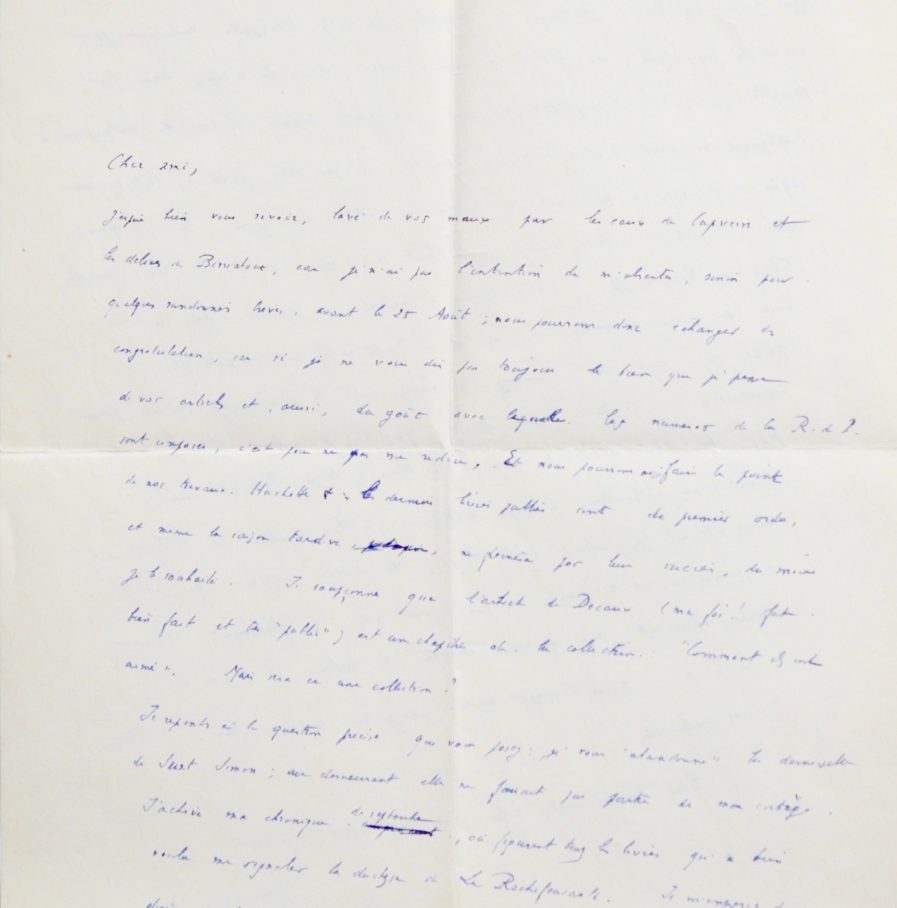 Cher ami,
J'espère bien vous revoir, lavé de vos maux par les eaux de Capvern et
les délices de , car je n'ai pas l'intention de m'absenter, sinon pour
quelques randonnées brèves, avant le 25 Août ; nous pourrons donc échanger des
congratulations, car si je ne vous dis pas toujours le bien que je pense
de vos articles et, aussi, du goût avec lequel les numéros de la R. de P.
sont composés, c'est pour ne pas me redire. Et nous pourrons faire le point
de nos travaux. Hachette les derniers livres publiés sont de premier ordre,
et même la saison tardive , ne par leur succès, du moins
je le souhaite. Je soupçonne que l'article de Decaux (ma foi ! fort
bien fait et très "public") est un chapitre de la collection : "Comment ils ont
aimé". Mais sera ce une collection ?
Je réponds à la question précise que vous posez : je vous "abandonne" les demoiselles
de Saint Simon ; au demeurant elles ne faisaient pas partie de mon cortège.
J'achève ma chronique de septembre , où figurent tous les livres qu'a bien
voulu me signaler la duchesse de La Rochefoucauld. Je